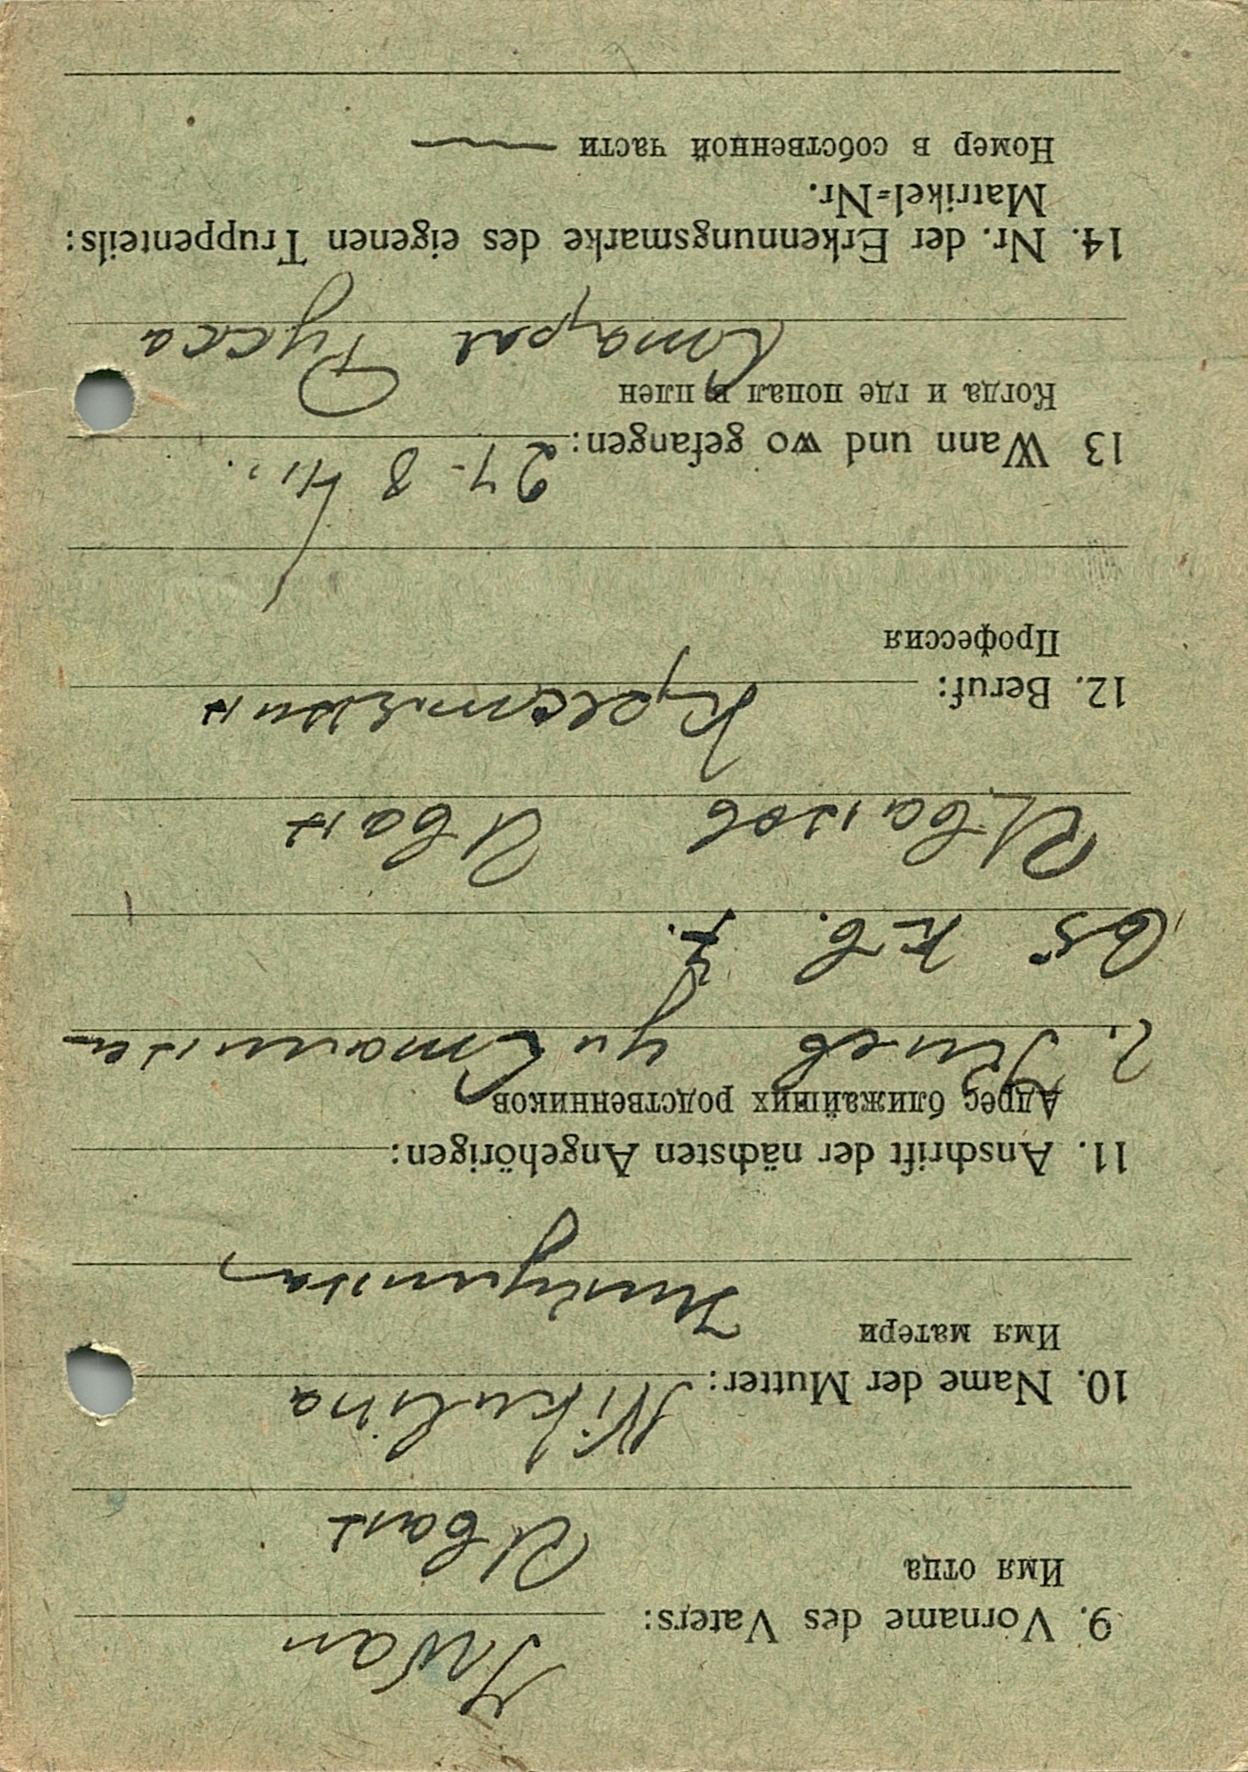 Iwan
9. Vorname des Vaters:
Имя отца
Иван
Nikulina
10. Name der Mutter:
Имя матери
Никулина
11. Anschrift der nächsten Angehörigen:
Адрес ближайших родственников
г. Киев ул Сталина
65 кв. 7.
Иванов Иван
12. Beruf: Крестьянин
Профессия
13 Wann und wo gefangen: 27-8 41
Когда и где попал в плен
Старая Русса
14. Nr. der Erkennungsmarke des eigenen Truppenteils:
Matrikel=Nr.
Номер в собственной части —